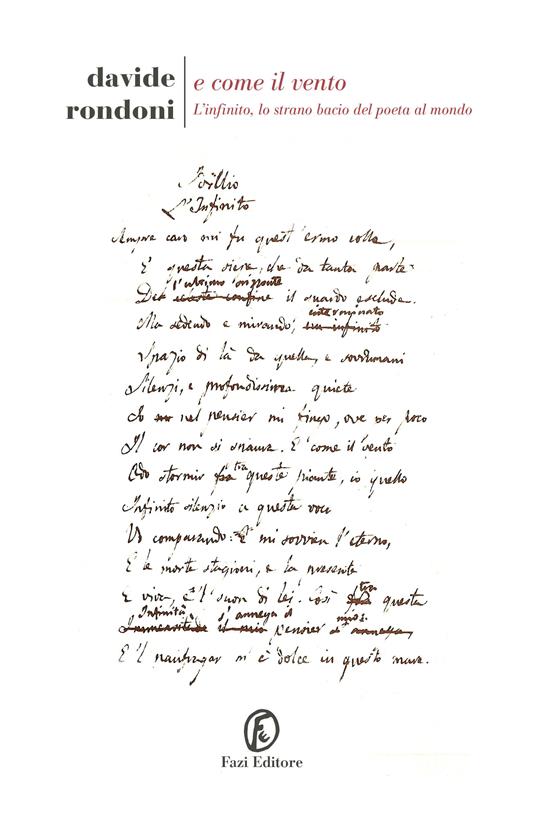 davide rondoni
e come il vento
L'infinito, lo strano bacio del poeta al mondo
Idillio
L'Infinito
Sempre caro mi fu quest'ermo colle,
E questa siepe, che da tanta parte
l'ultimo orizzonte
Del celeste confine il guardo esclude.
interminato
Ma sedendo e mirando, un infinito
Spazio di là da quella, e sovrumani
Silenzi, e profondissima quiete
Io nel pensier mi fingo, ove per poco
Il cor non si spaura. E come il vento
tra
Odo stormir fra queste piante, io quello
Infinito silenzio a questa voce
Vo comparando: E mi sovvien l'eterno,
E le morte stagioni, e la presente
E viva, e 'l suon di lei. Così fra questa
tra
Infinità s'annega il mio:
Immensitade il mio pensier s'annega,
E 'l naufragar m'è dolce in questo mare.
Fe
Fazi Editore